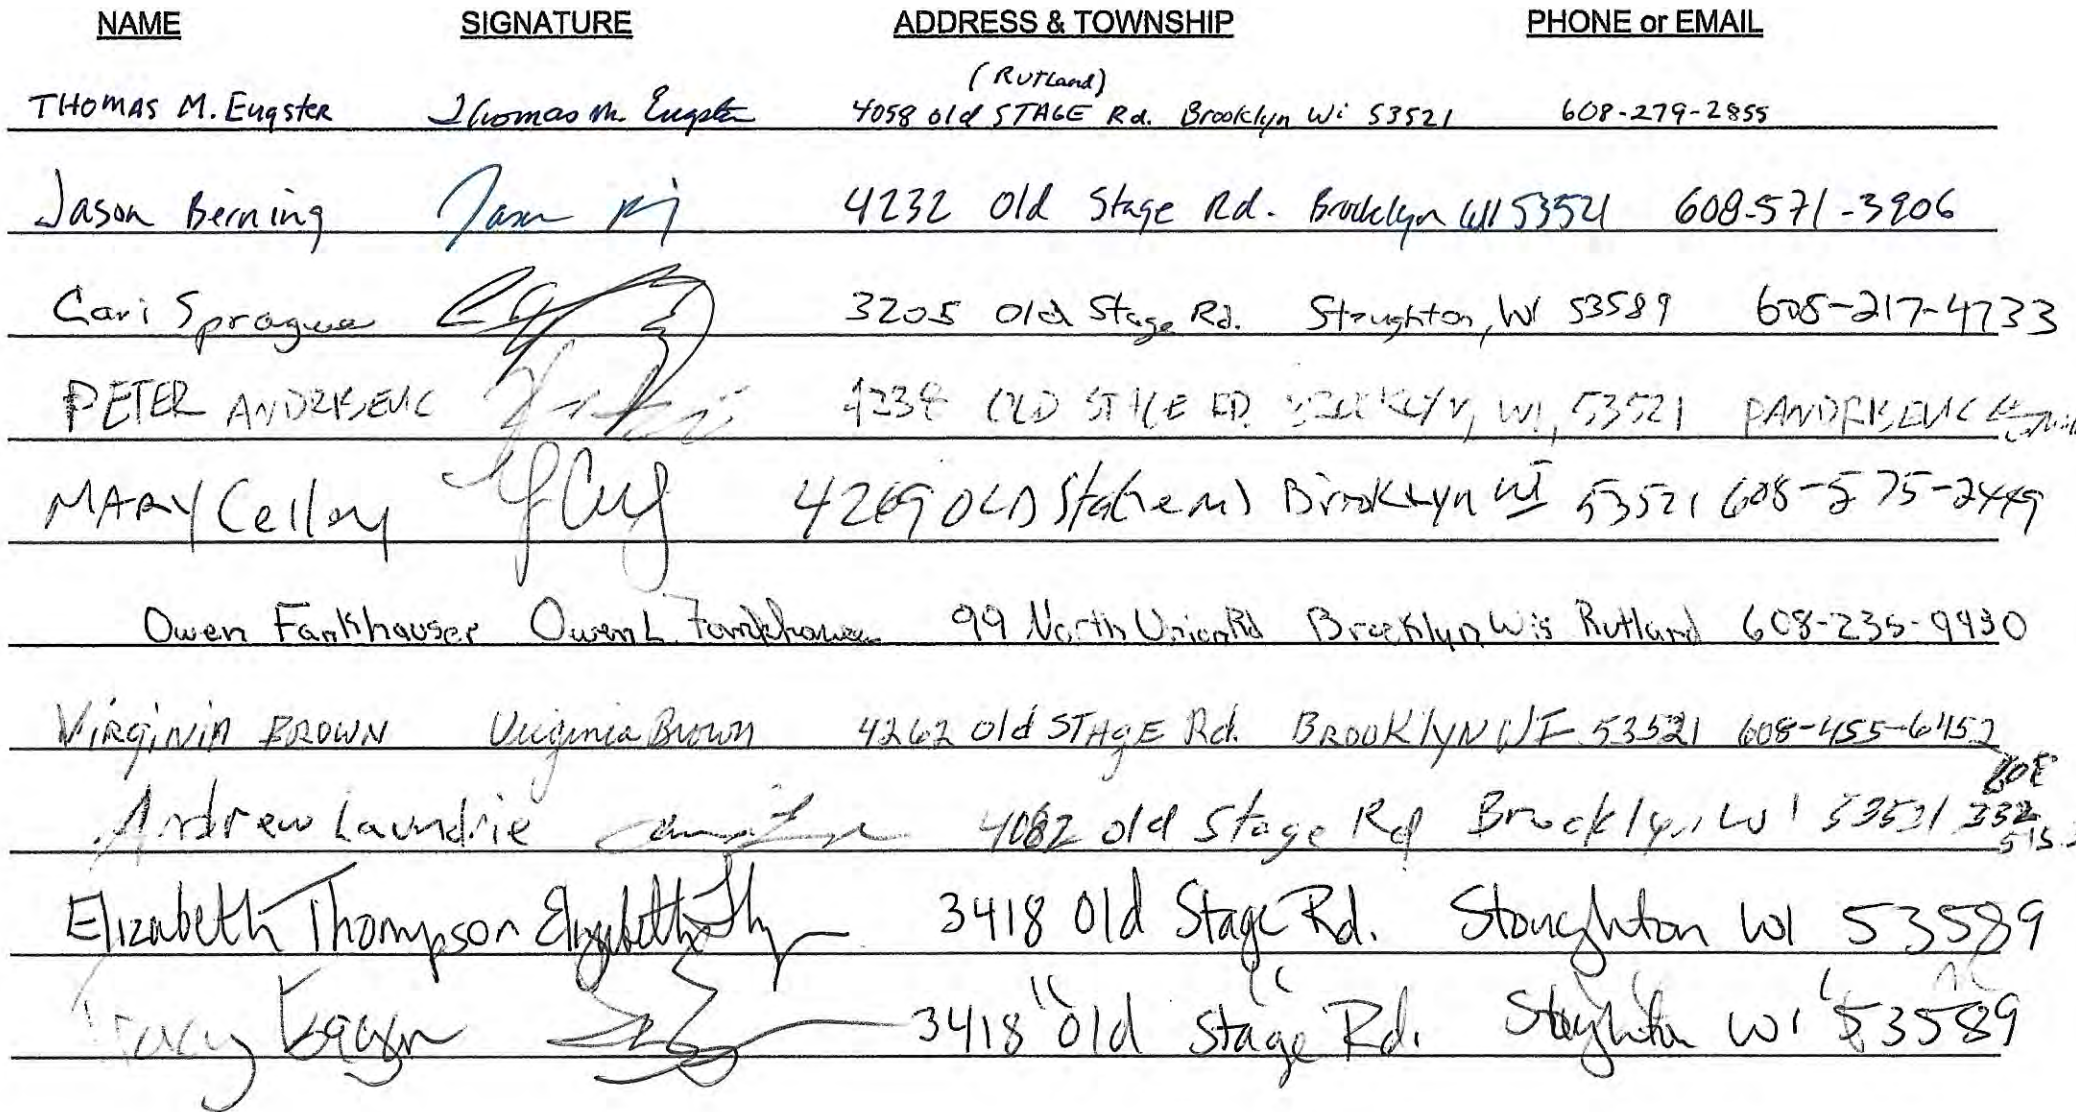 NAME SIGNATURE ADDRESS & TOWNSHIP PHONE or EMAIL
(Rutland)
THOMAS M. Eugster Thomas M. Eugster 4058 old STAGE Rd. Brooklyn Wi 53521 608-279-2855
Jason Berning Jason 4232 Old Stage Rd. Brooklyn WI 53521 608-571-3906
Cari Sprague 3205 Old Stage Rd. Stoughton, WI 53589 608-217-4733
PETER OLD STAGE RD. BROOKLYN, WI, 53521
MARY Celley 4269 OLD Stage Rd Brooklyn WI 53521 608-575-2449
Owen Fankhauser Owen L Fankhauser 99 North Union Rd Brooklyn Wis Rutland 608-235-9930
VIRGINIA BROWN Virginia Brown 4262 old STAGE Rd. BROOKLYN WI 53521 608-455-6452
Andrew Laundrie 4082 old Stage Rd Brooklyn, WI 53521 332
Elizabeth Thompson Elizabeth 3418 Old Stage Rd. Stoughton WI 53589
Tracy 3418 Old Stage Rd. Stoughton WI 53589